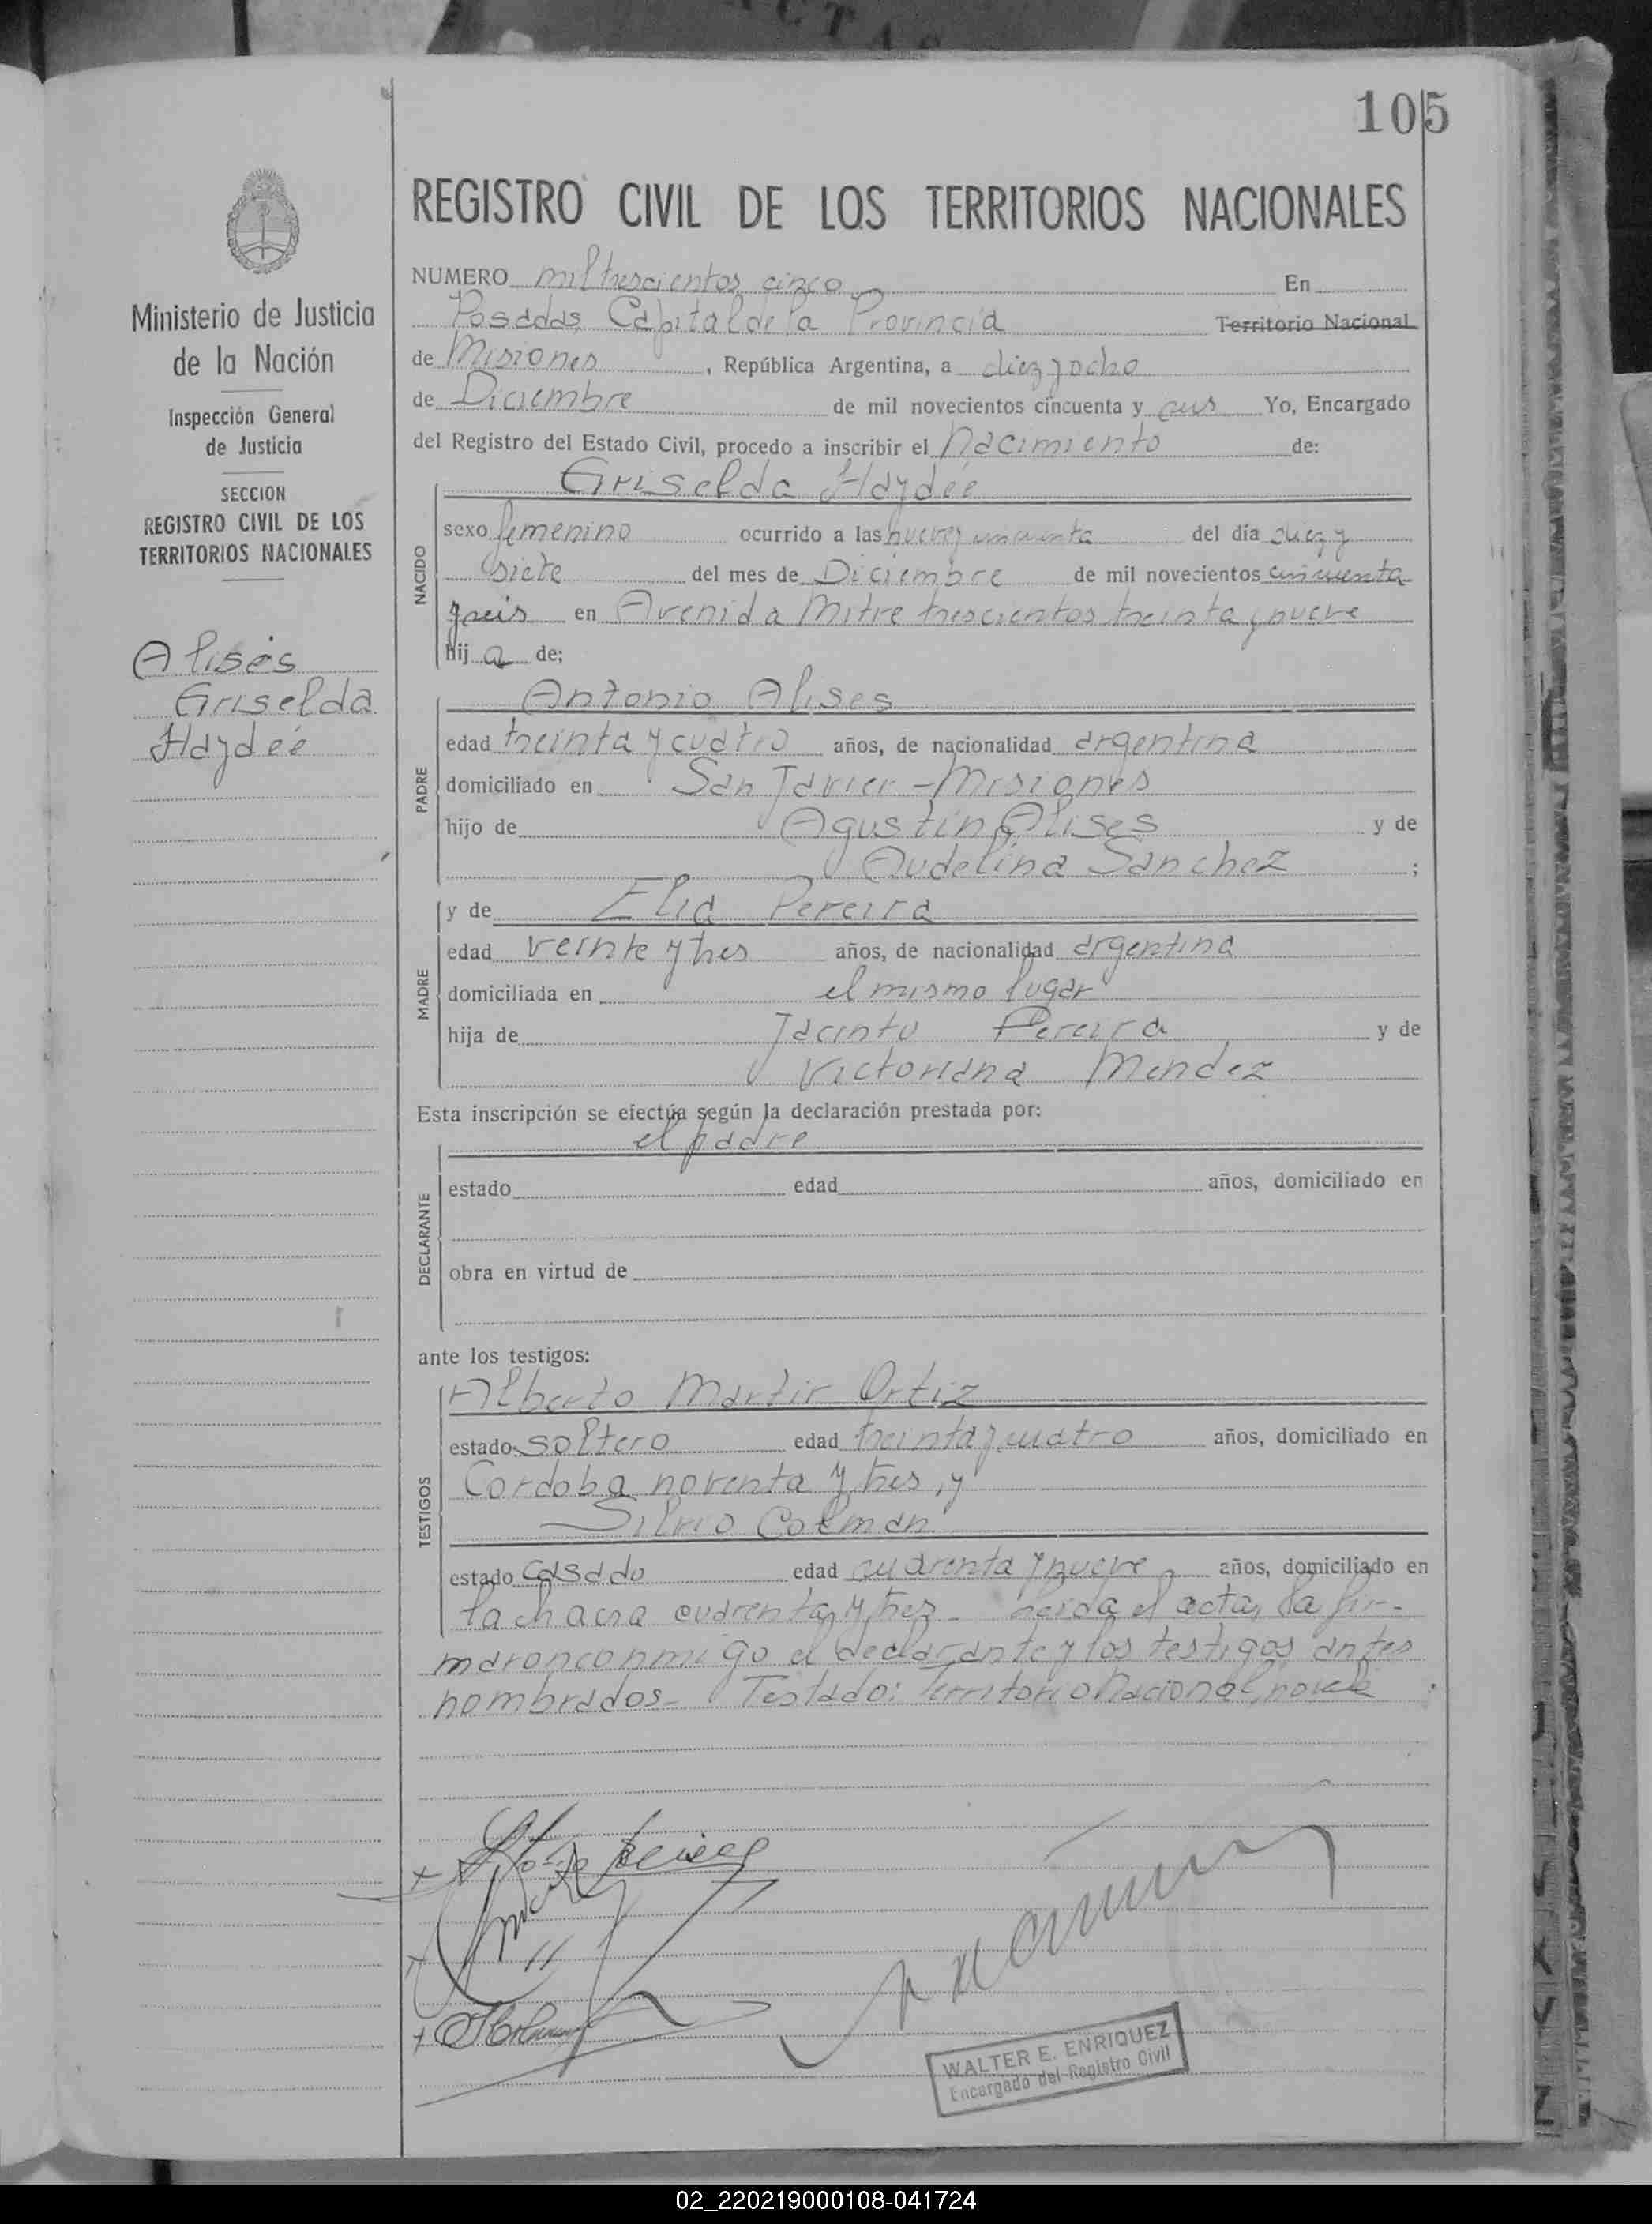 105
REGISTRO CIVIL DE LOS TERRITORIOS NACIONALES
Ministerio de Justicia
de la Nación
Inspección General
de Justicia
SECCION
REGISTRO CIVIL DE LOS
TERRITORIOS NACIONALES
Alises
Griselda
Haydeé
NUMERO mil trescientos cinco En
Posadas Capital de la Provincia Territorio Nacional
de Misiones, República Argentina, a diez y ocho
de Diciembre de mil novecientos cincuenta y seis Yo, Encargado
del Registro del Estado Civil, procedo a inscribir el Nacimiento de:
Griselda Haydeé
NACIDO
sexo femenino ocurrido a las nueve y cincuenta del día diez y
siete del mes de Diciembre de mil novecientos cincuenta
y seis en Avenida Mitre trescientos treinta y nueve
hij a de;
Antonio Alises
PADRE
edad treinta y cuatro años, de nacionalidad argentina
domiciliado en San Javier - Misiones
hijo de Agustin Alises y de
Audelina Sanchez ;
y de Elia Pereira
MADRE
edad veinte y tres años, de nacionalidad argentina
domiciliada en el mismo lugar
hija de Jacinto Pereira y de
Victoriana Mendez
Esta inscripción se efectúa según la declaración prestada por:
el padre
DECLARANTE
estado edad años, domiciliado en
obra en virtud de
ante los testigos:
Alberto Martir Ortiz
TESTIGOS
estado soltero edad treinta y cuatro años, domiciliado en
Cordoba noventa y tres, y
Silvio Colman
estado casado edad cuarenta y nueve años, domiciliado en
la chacra cuarenta y tres - Leida el acta, la fir-
maron conmigo el declarante y los testigos antes
nombrados - Testado: Territorio Nacional, no vale
WALTER E. ENRIQUEZ
Encargado del Registro Civil
02_220219000108-041724